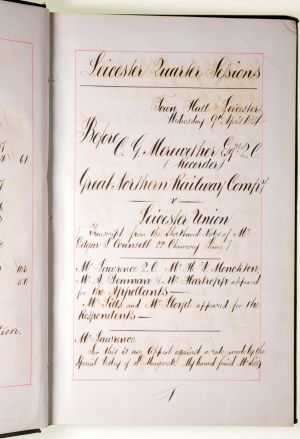 Leicester Quarter Sessions
Town Hall Leicester
Wednesday 9th April 1884
Before C. G. Merewether Esqre Q.C.
(Recorder)
Great Northern Railway Compy
v
Leicester Union
(Transcript from the Shorthand Notes of Mr
Edgar S Counsell 22 Chancery Lane)
Mr Lawrance Q.C. Mr H. S. Monckton
Mr A. Denman & Mr Hartopp appeared
for the Appellants —
Mr Sills and Mr Lloyd appeared for the
Respondents —
Mr Lawrance
Sir this is an Appeal against a rate made by the
Special Vestry of St Margarets My learned friend Mr Sills
1
61
104
50